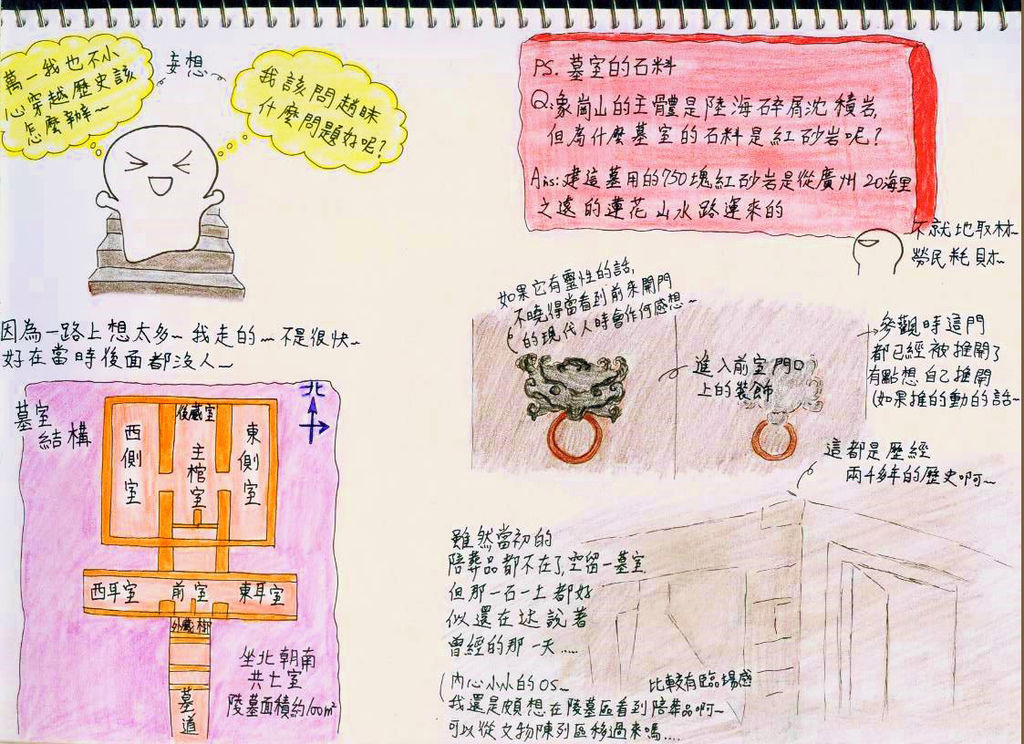 萬一我也不小
心穿越歷史該
怎麼辦~
妄想
我該問趙眜
什麼問題好呢?
因為一路上想太多~ 我走的~ 不是很快~
好在當時後面都沒人~
墓室
結構
北
後藏室
西側室
主棺室
東側室
西耳室
前室
東耳室
外藏槨
墓道
坐北朝南
共七室
陵墓面積約100m²
PS. 墓室的石料
Q:象崗山的主體是陸海碎屑沈積岩,
但為什麼墓室的石料是紅砂岩呢?
Ans:建這墓用的750塊紅砂岩是從廣州20海里
之遠的蓮花山水路運來的
不就地取材~
勞民耗財~
如果它有靈性的話,
不曉得當看到前來開門
的現代人時會作何感想~
進入前室門口
上的裝飾
參觀時這門
都已經被推開了
有點想自己推開
(如果推的動的話~
這都是歷經
兩千多年的歷史啊~
雖然當初的
陪葬品都不在了,空留一墓室
但那一石一土都好
似還在述說著
曾經的那一天.....
(內心小小的OS~
比較有臨場感
我還是頗想在陵墓區看到陪葬品啊~
可以從文物陳列區移過來嗎....